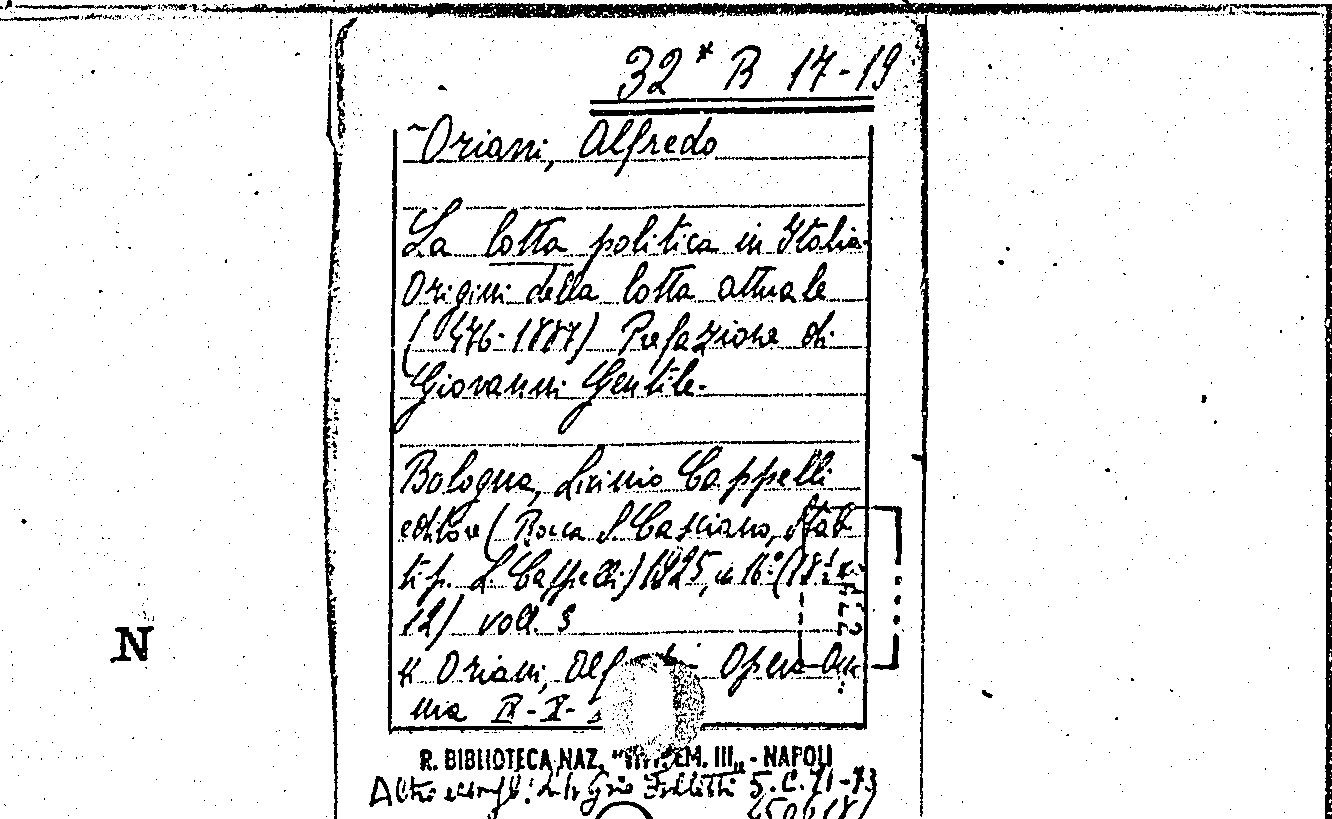 32* B 17-19
Oriani, Alfredo
La lotta politica in Italia.
Origini della lotta attuale
(476-1887) Prefazione di
Giovanni Gentile.
Bologna, Licinio Cappelli
editore (Rocca S. Casciano, Stab.
tip. L. Cappelli) 1925, in 16° (18 x
12) voll. 3
Oriani, Opera Om
nia IX-X-
R. BIBLIOTECA NAZ. "VITT. EM. III„ - NAPOLI
Altro 5.C.71-73
N